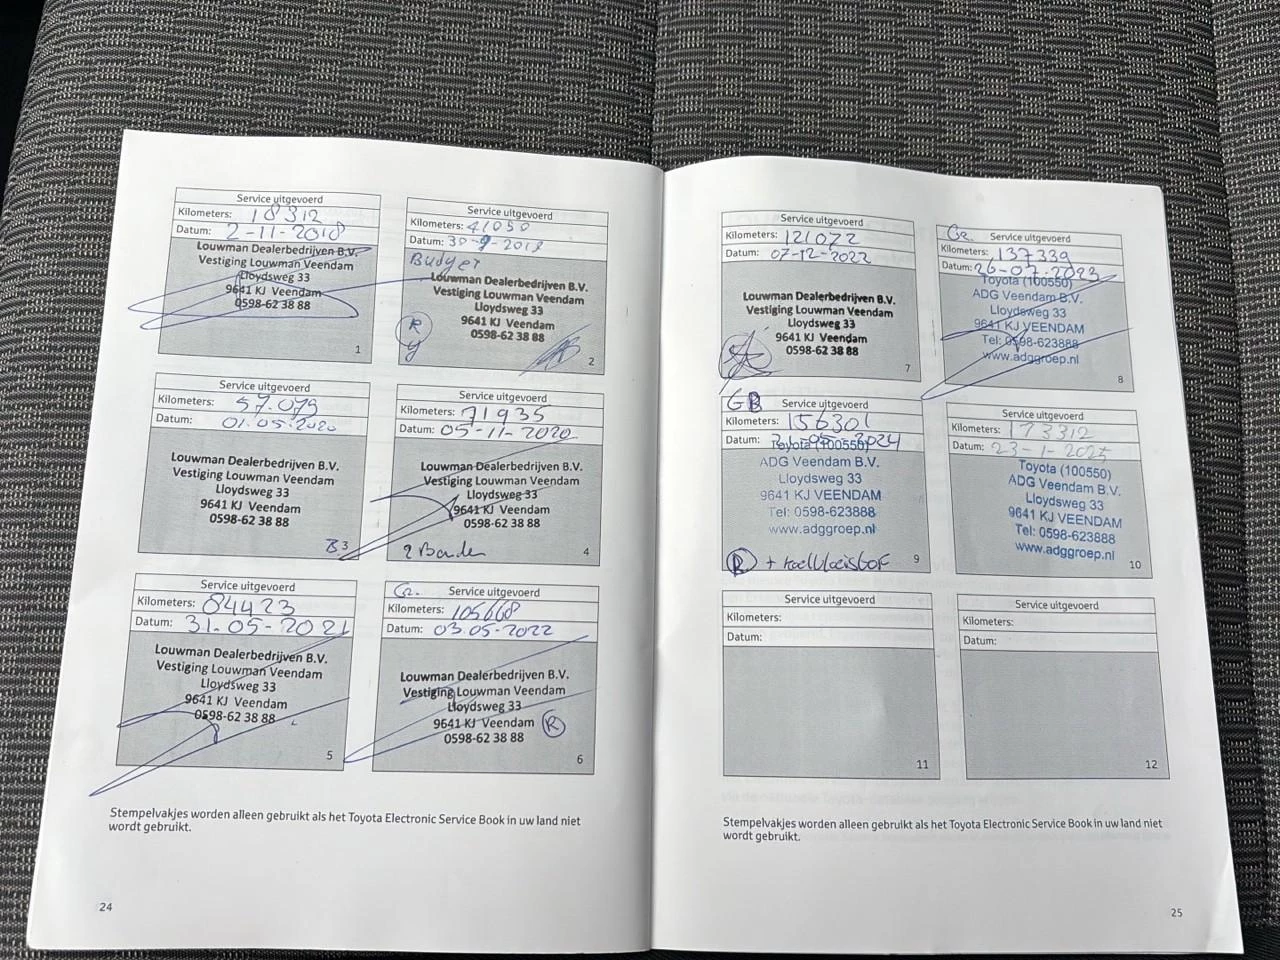 Service uitgevoerd
Kilometers: 18312
Datum: 2-11-2018
Louwman Dealerbedrijven B.V.
Vestiging Louwman Veendam
Lloydsweg 33
9641 KJ Veendam
0598-62 38 88
1
Service uitgevoerd
Kilometers: 41050
Datum: 30-9-2018
Budget
Louwman Dealerbedrijven B.V.
Vestiging Louwman Veendam
Lloydsweg 33
9641 KJ Veendam
0598-62 38 88
R
2
Service uitgevoerd
Kilometers: 57.079
Datum: 01.05.2020
Louwman Dealerbedrijven B.V.
Vestiging Louwman Veendam
Lloydsweg 33
9641 KJ Veendam
0598-62 38 88
B 3
Service uitgevoerd
Kilometers: 71935
Datum: 05-11-2020
Louwman Dealerbedrijven B.V.
Vestiging Louwman Veendam
Lloydsweg 33
9641 KJ Veendam
0598-62 38 88
2 Banden
4
Service uitgevoerd
Kilometers: 84423
Datum: 31-05-2021
Louwman Dealerbedrijven B.V.
Vestiging Louwman Veendam
Lloydsweg 33
9641 KJ Veendam
0598-62 38 88
5
Service uitgevoerd
Kilometers: 105668
Datum: 03.05-2022
Louwman Dealerbedrijven B.V.
Vestiging Louwman Veendam
Lloydsweg 33
9641 KJ Veendam R
0598-62 38 88
6
Stempelvakjes worden alleen gebruikt als het Toyota Electronic Service Book in uw land niet
wordt gebruikt.
24
Service uitgevoerd
Kilometers: 121072
Datum: 07-12-2022
Louwman Dealerbedrijven B.V.
Vestiging Louwman Veendam
Lloydsweg 33
9641 KJ Veendam
0598-62 38 88
7
Service uitgevoerd
Kilometers: 137339
Datum: 26-07-2023
Toyota (100550)
ADG Veendam B.V.
Lloydsweg 33
9641 KJ VEENDAM
Tel: 0598-623888
www.adggroep.nl
8
GB
Service uitgevoerd
Kilometers: 156301
Datum: 2024
Toyota (100550)
ADG Veendam B.V.
Lloydsweg 33
9641 KJ VEENDAM
Tel: 0598-623888
www.adggroep.nl
R + koelvloeistof
9
Service uitgevoerd
Kilometers: 173312
Datum: 23-1-2025
Toyota (100550)
ADG Veendam B.V.
Lloydsweg 33
9641 KJ VEENDAM
Tel: 0598-623888
www.adggroep.nl
10
Service uitgevoerd
Kilometers:
Datum:
11
Service uitgevoerd
Kilometers:
Datum:
12
Stempelvakjes worden alleen gebruikt als het Toyota Electronic Service Book in uw land niet
wordt gebruikt.
25